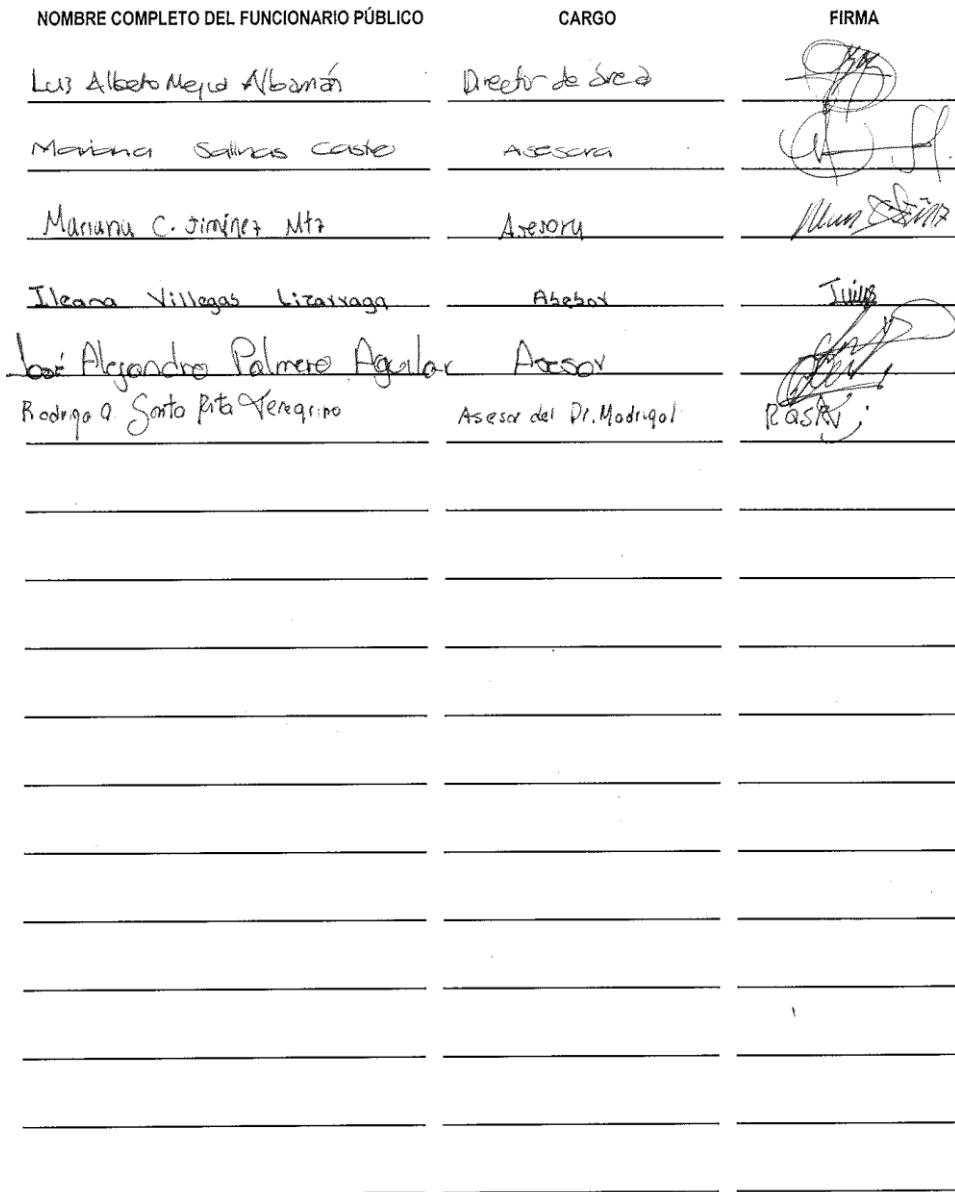 NOMBRE COMPLETO DEL FUNCIONARIO PÚBLICO CARGO FIRMA
Luis Alberto Mejia Albarrán Director de área
Mariana Salinas Castro Asesora
Mariana C. Jiménez Mtz Asesora
Ileana Villegas Lizarraga Asesor
José Alejandro Palmero Aguilar Asesor
Rodrigo A. Santa Rita Feregrino Asesor del Dr. Madrigal